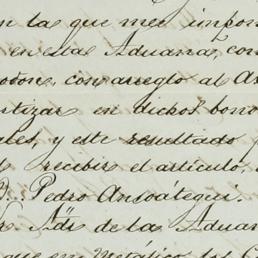 en la que me impon
en estas Aduanas, con
odon, con arreglo al A
rtizar en dichos bono
ales, y este resultado
recibir el articulo,
D. Pedro Ansoátegui.
Adr. de la Aduan
que en metálico los C